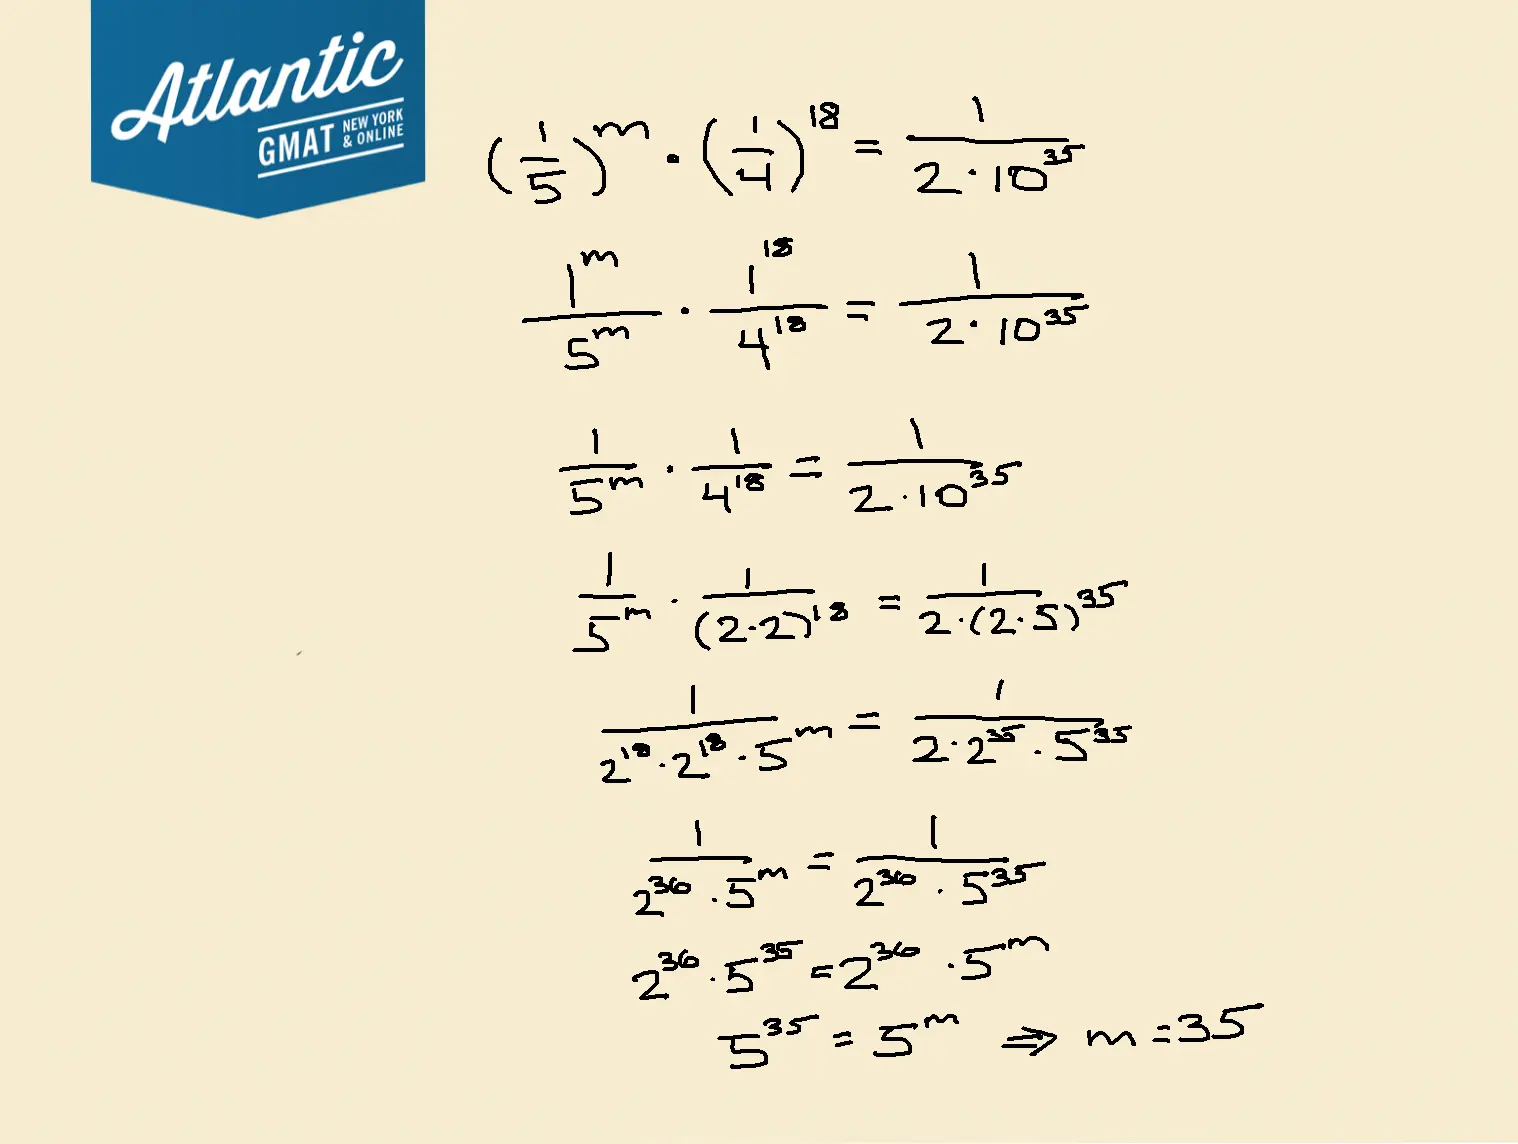 Atlantic
GMAT NEW YORK & ONLINE
(1/5)^m · (1/4)^18 = 1/(2·10^35)
1^m/5^m · 1^18/4^18 = 1/(2·10^35)
1/5^m · 1/4^18 = 1/(2·10^35)
1/5^m · 1/(2·2)^18 = 1/(2·(2·5)^35)
1/(2^18·2^18·5^m) = 1/(2·2^35·5^35)
1/(2^36·5^m) = 1/(2^36·5^35)
2^36·5^35 = 2^36·5^m
5^35 = 5^m ⇒ m = 35